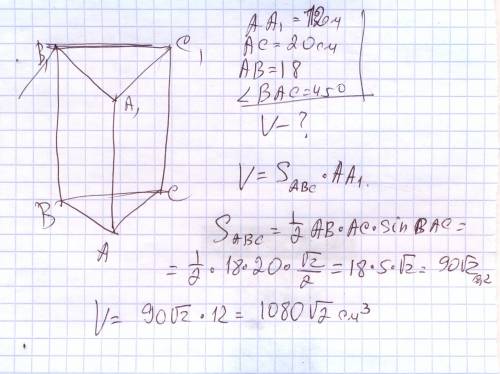 B₁ C₁
A₁
B C
A
AA₁ = 12см
AC = 20см
AB = 18
∠BAC = 45°
V - ?
V = S_ABC · AA₁.
S_ABC = 1/2 AB · AC · sin BAC =
= 1/2 · 18 · 20 · √2/2 = 18 · 5 · √2 = 90√2 см²
V = 90√2 · 12 = 1080√2 см³